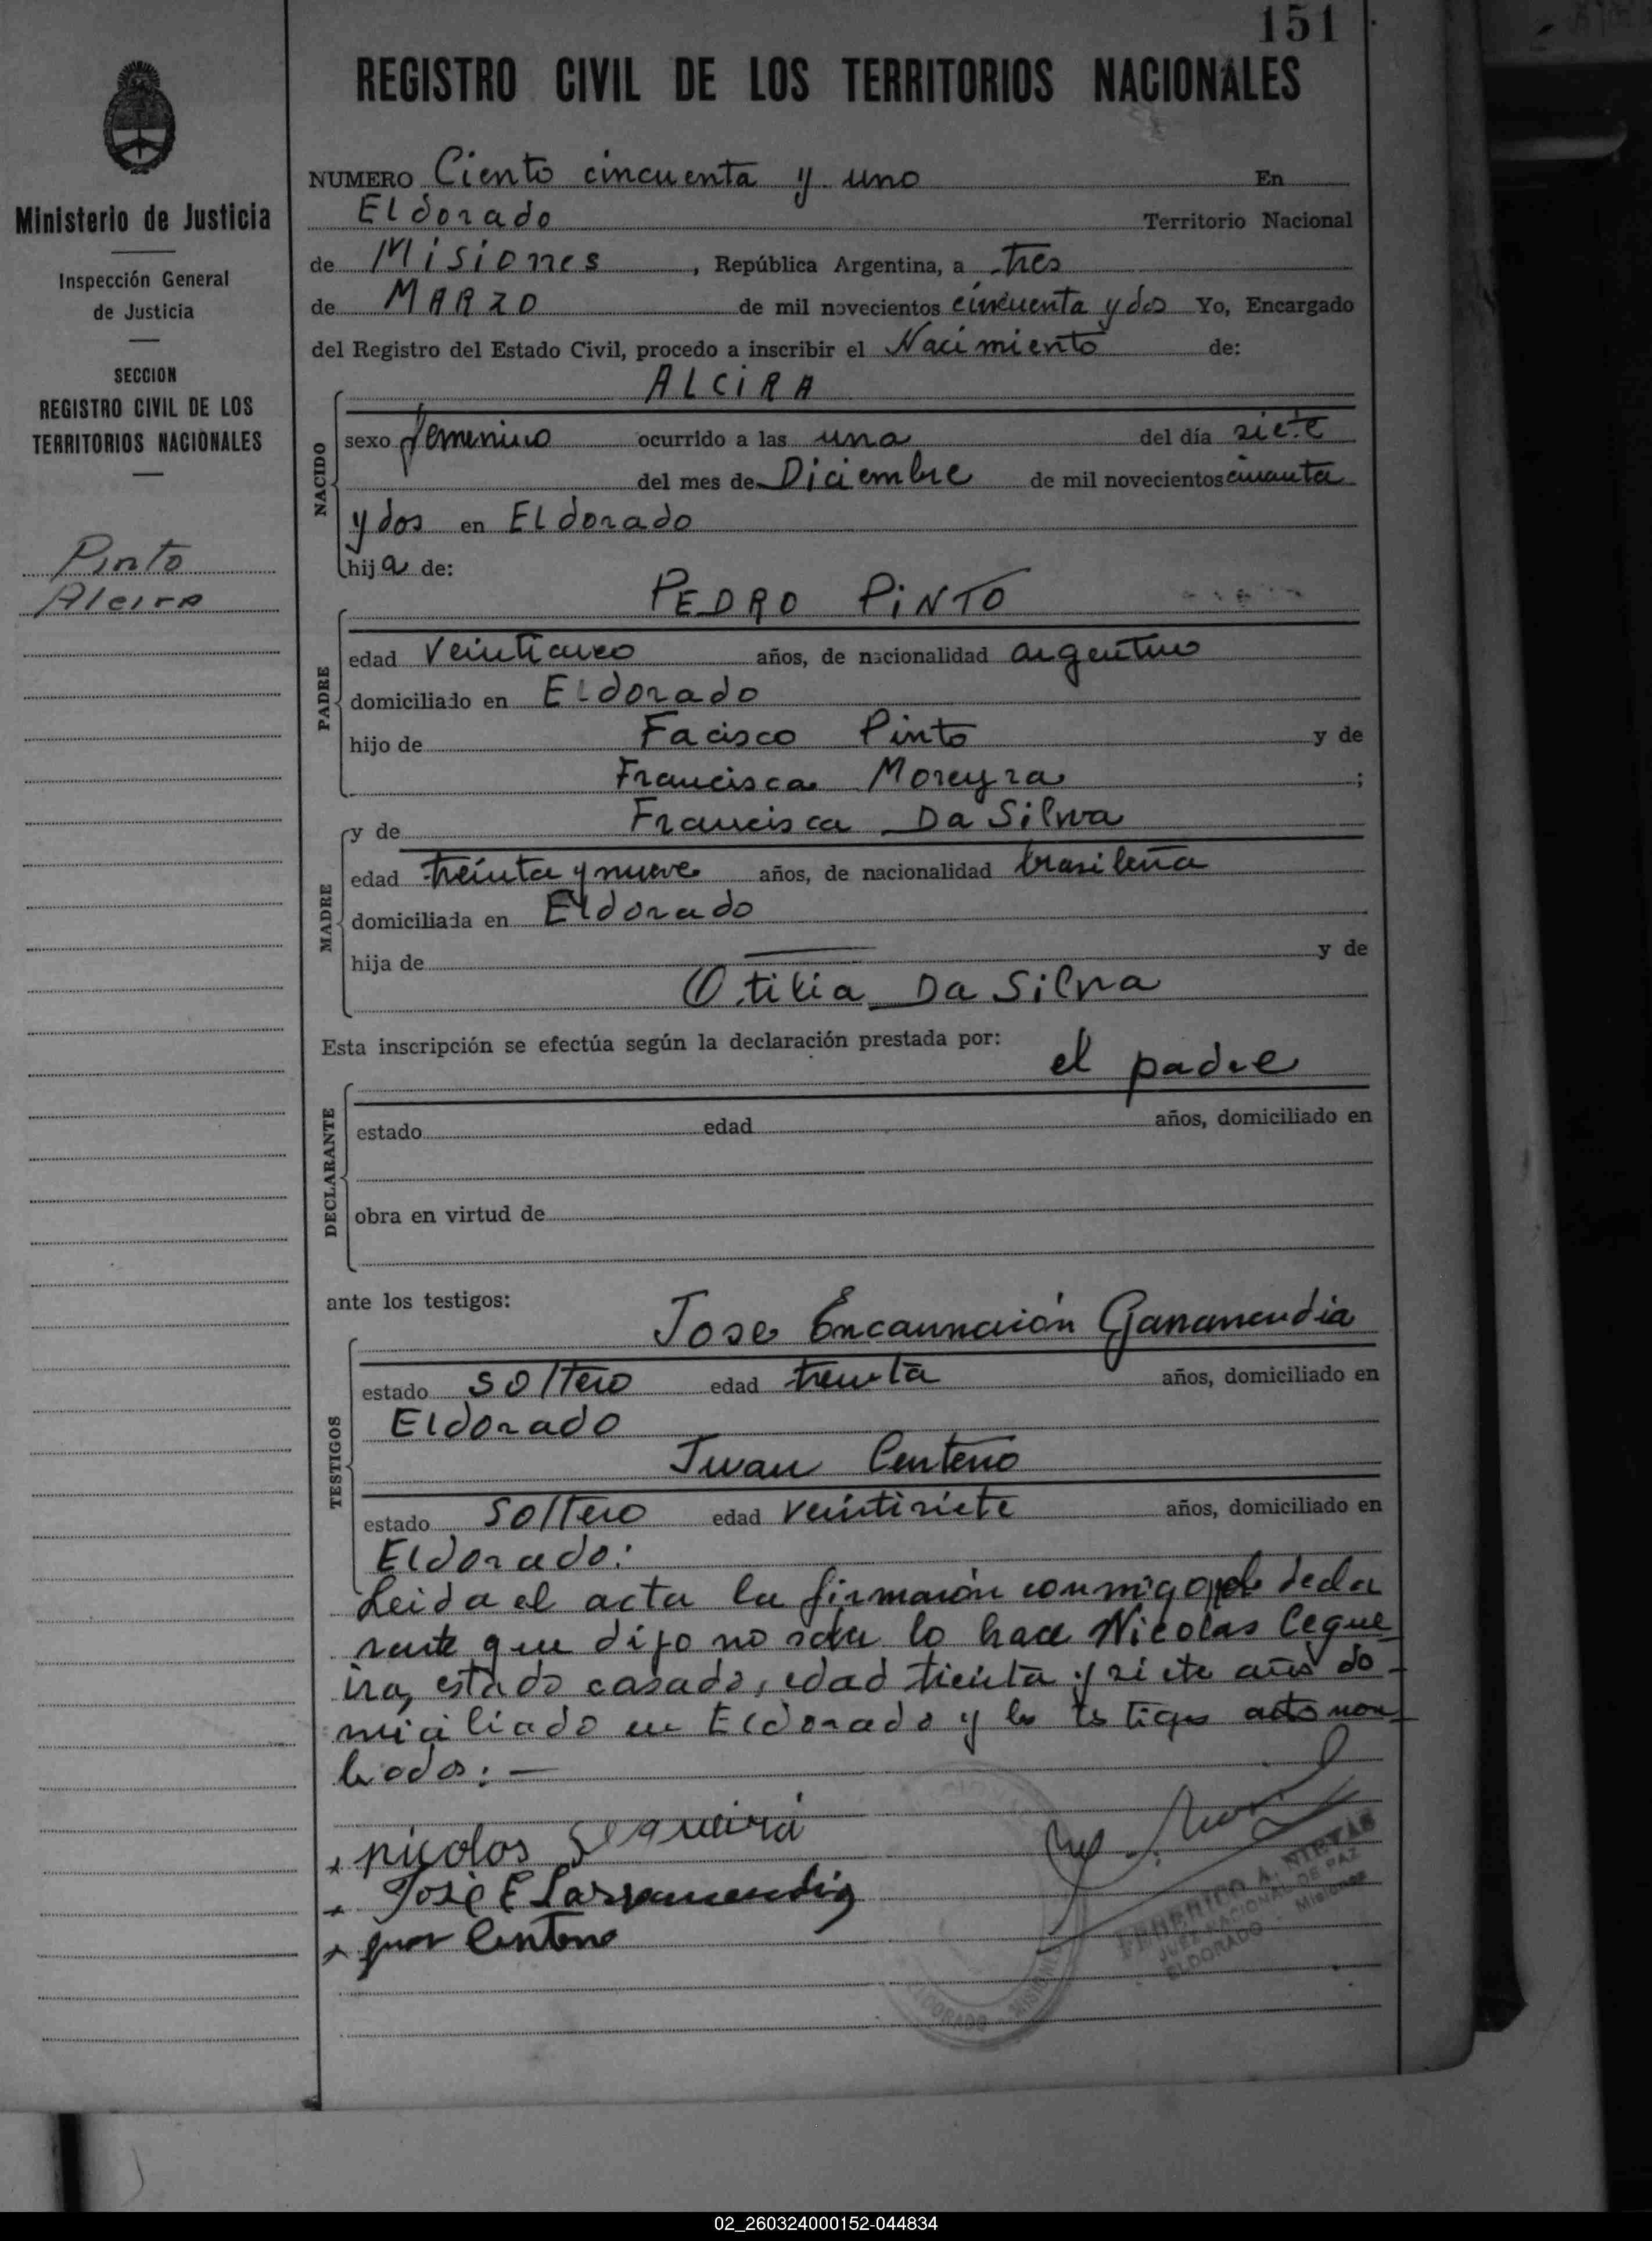 151
REGISTRO CIVIL DE LOS TERRITORIOS NACIONALES
Ministerio de Justicia
Inspección General
de Justicia
SECCION
REGISTRO CIVIL DE LOS
TERRITORIOS NACIONALES
Pinto
Alcira
NUMERO Ciento cincuenta y uno En
Eldorado Territorio Nacional
de Misiones, República Argentina, a tres
de MARZO de mil novecientos cincuenta y dos Yo, Encargado
del Registro del Estado Civil, procedo a inscribir el Nacimiento de:
ALCIRA
NACIDO
sexo femenino ocurrido a las una del día siete
del mes de Diciembre de mil novecientos
y dos en Eldorado
hija de:
PEDRO PINTO
PADRE
edad años, de nacionalidad argentino
domiciliado en Eldorado
hijo de Facisco Pinto y de
Francisca Moreyra ;
y de Francisca Da Silva
MADRE
edad treinta y nueve años, de nacionalidad brasileña
domiciliada en Eldorado
hija de y de
Otilia Da Silva
Esta inscripción se efectúa según la declaración prestada por:
el padre
DECLARANTE
estado edad años, domiciliado en
obra en virtud de
ante los testigos:
Jose Encarnación
TESTIGOS
estado soltero edad treinta años, domiciliado en
Eldorado
Juan Centeno
estado soltero edad veintisiete años, domiciliado en
Eldorado:
Leida el acta la firmarón conmigo, decla
rante que dijo no saber lo hace Nicolas Ceque
ira, estado casado, edad treinta y siete años do-
miciliado en Eldorado y los testigos nom
brados: —
nicolas Sequeira
Jose E Larramendia
Juan Centeno
FEDERICO A. NIETAS
JUEZ NACIONAL DE PAZ
ELDORADO - Misiones
ELDORADO MISIONES
02_260324000152-044834